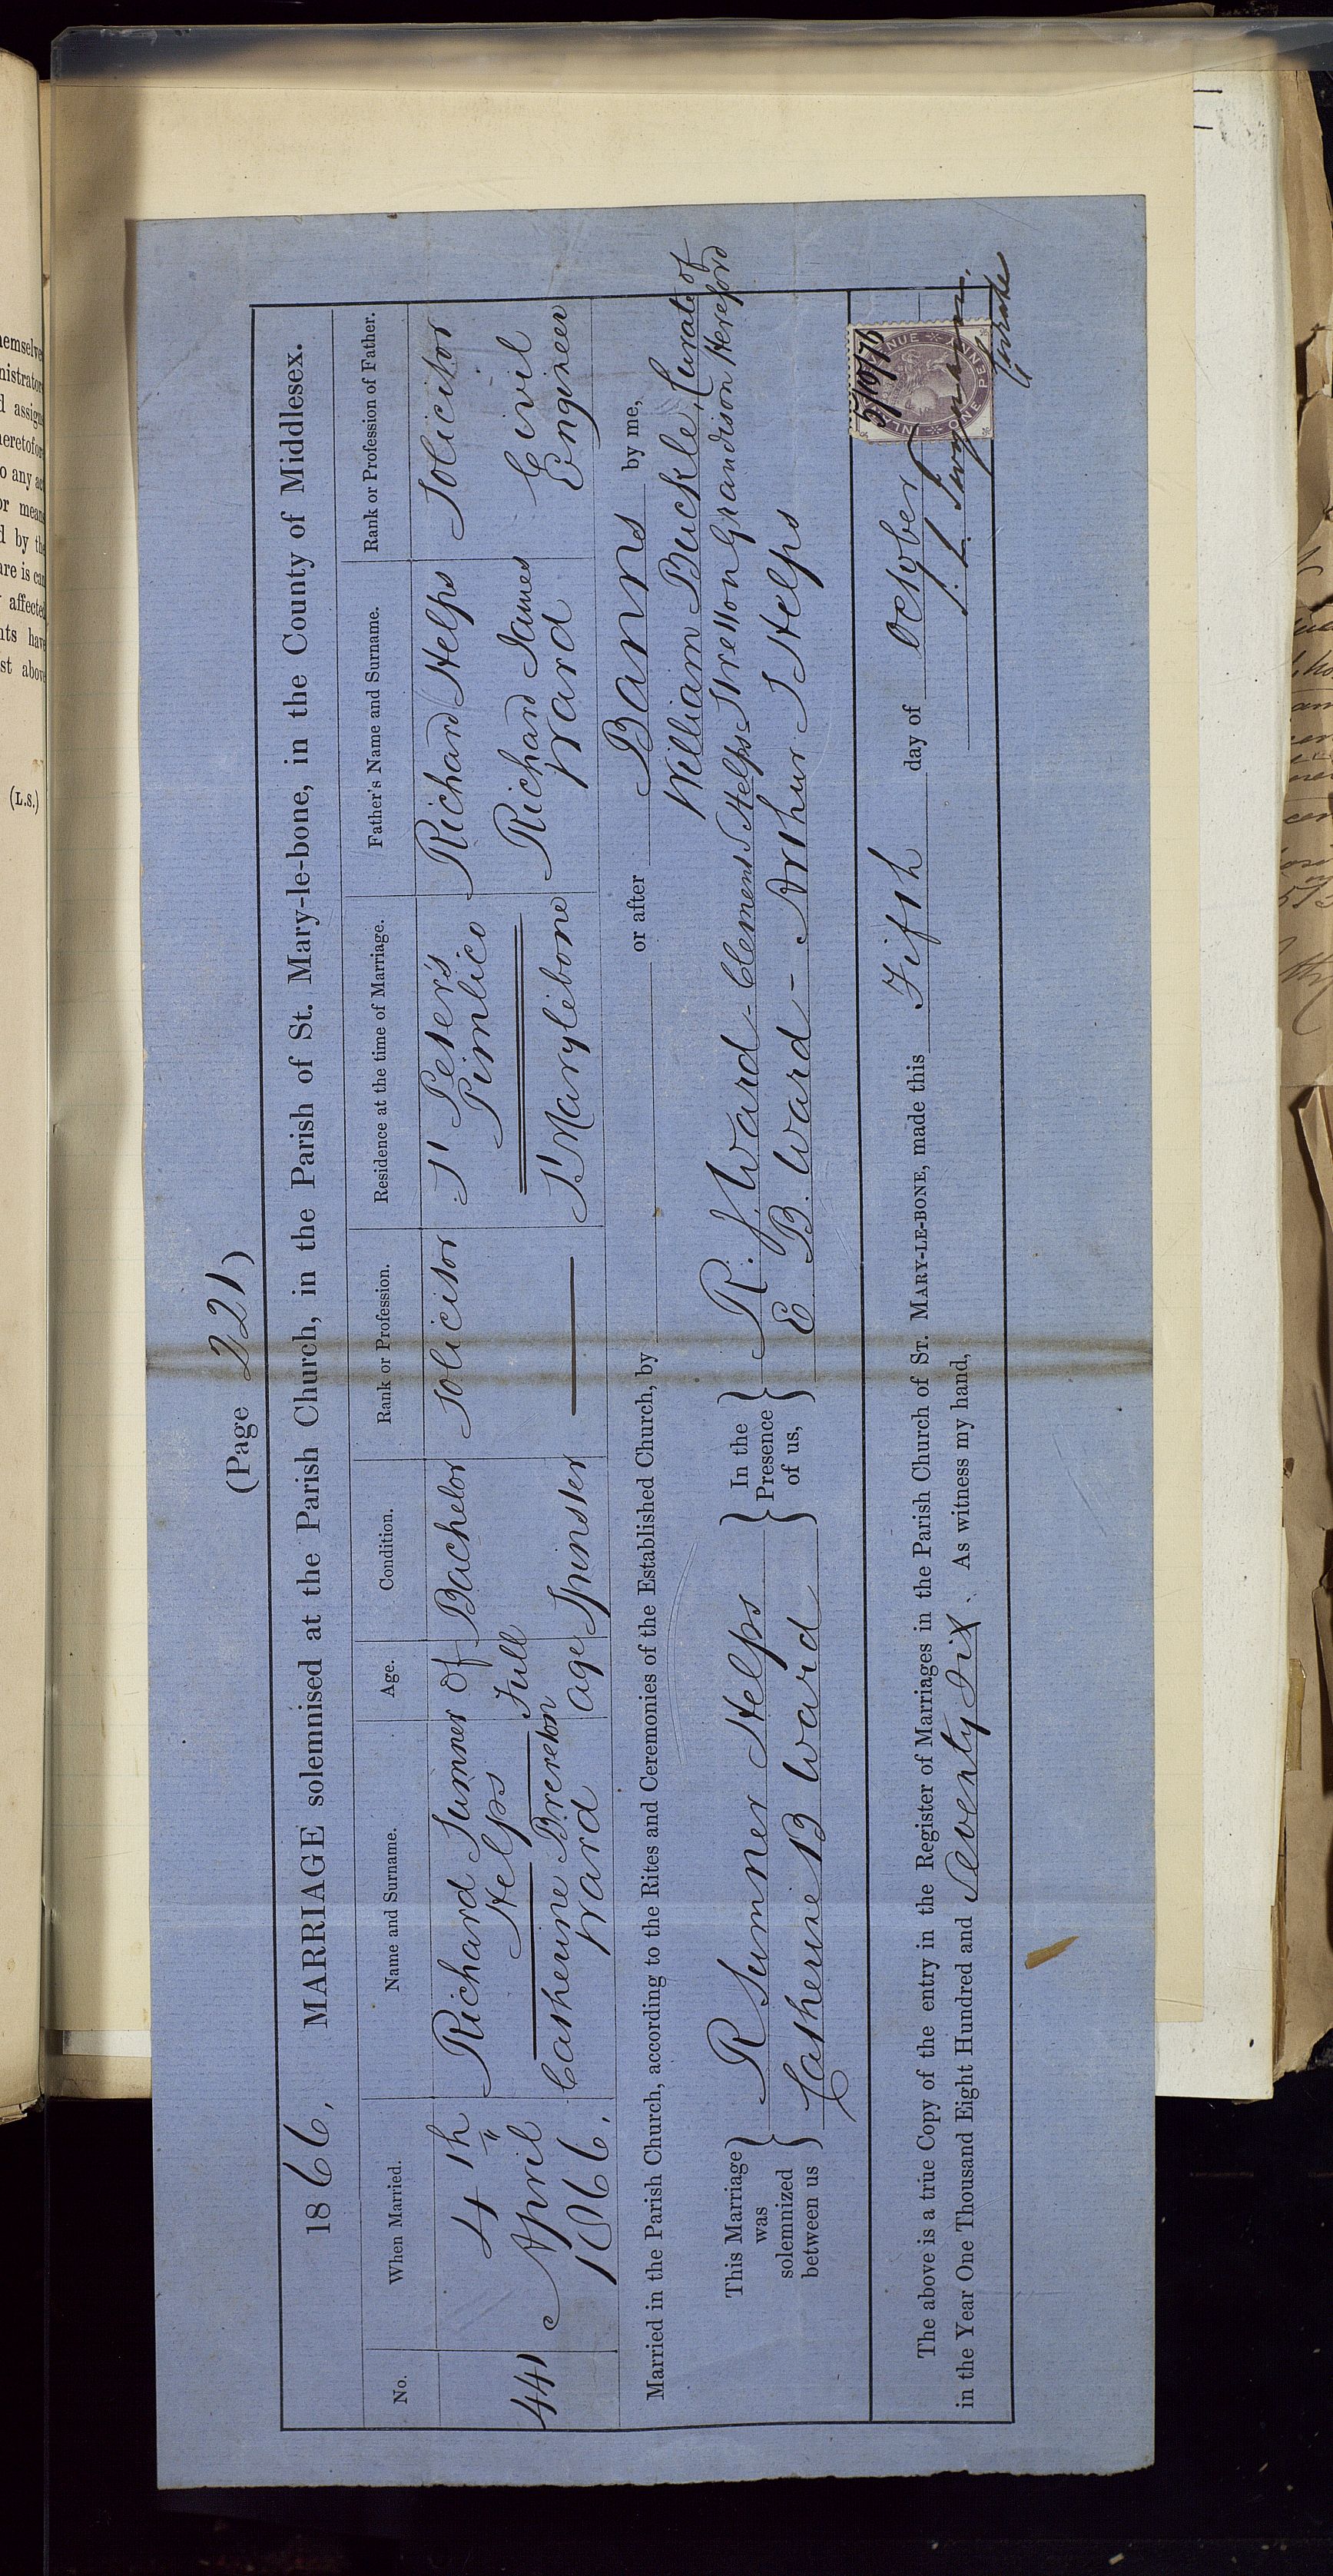 (Page 221)
1866, MARRIAGE solemnised at the Parish Church, in the Parish of St. Mary-le-bone, in the County of Middlesex.
No. When Married. Name and Surname. Age. Condition. Rank or Profession. Residence at the time of Marriage. Father's Name and Surname. Rank or Profession of Father.
441
4th
April
1866.
Richard Sumner
Helps
Catherine Brereton
Ward
Of
Full
age
Bachelor
Spinster
Solicitor
St Peter's
Pimlico
St Marylebone
Richard Helps
Richard James
Ward
Solicitor
Civil
Engineer
Married in the Parish Church, according to the Rites and Ceremonies of the Established Church, by or after Banns by me,
William Buckle, Curate of
Stretton Grandison Hereford
This Marriage
was
solemnized
between us
R Sumner Helps
Catherine B Ward
In the
Presence
of us,
R. J. Ward - Clement Helps
E B. Ward - Arthur S Helps
The above is a true Copy of the entry in the Register of Marriages in the Parish Church of St. MARY-LE-BONE, made this Fifth day of October
in the Year One Thousand Eight Hundred and Seventy Six. As witness my hand,
Curate
5/10/76
INLAND REVENUE
ONE PENNY
(L.S.)